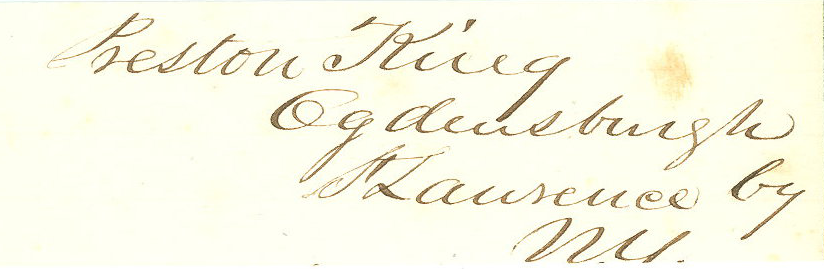 Preston King
Ogdensburgh
St Lawrence Cy
N.Y.